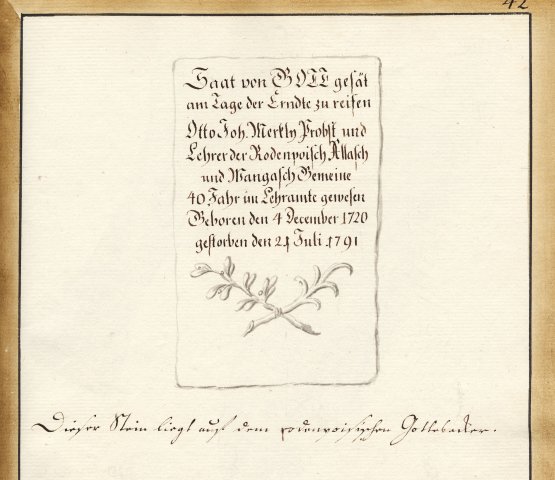 42
Saat von GOTT gesät
am Tage der Erndte zu reifen
Otto Joh. Merkly Probst und
Lehrer der Rodenpoisch Allasch
und Wangasch Gemeine
40 Jahr im Lehramte gewesen
Geboren den 4 December 1720
gestorben den 21 Juli 1791
Dieser Stein liegt auf dem rodenpoisischen Gottesacker.